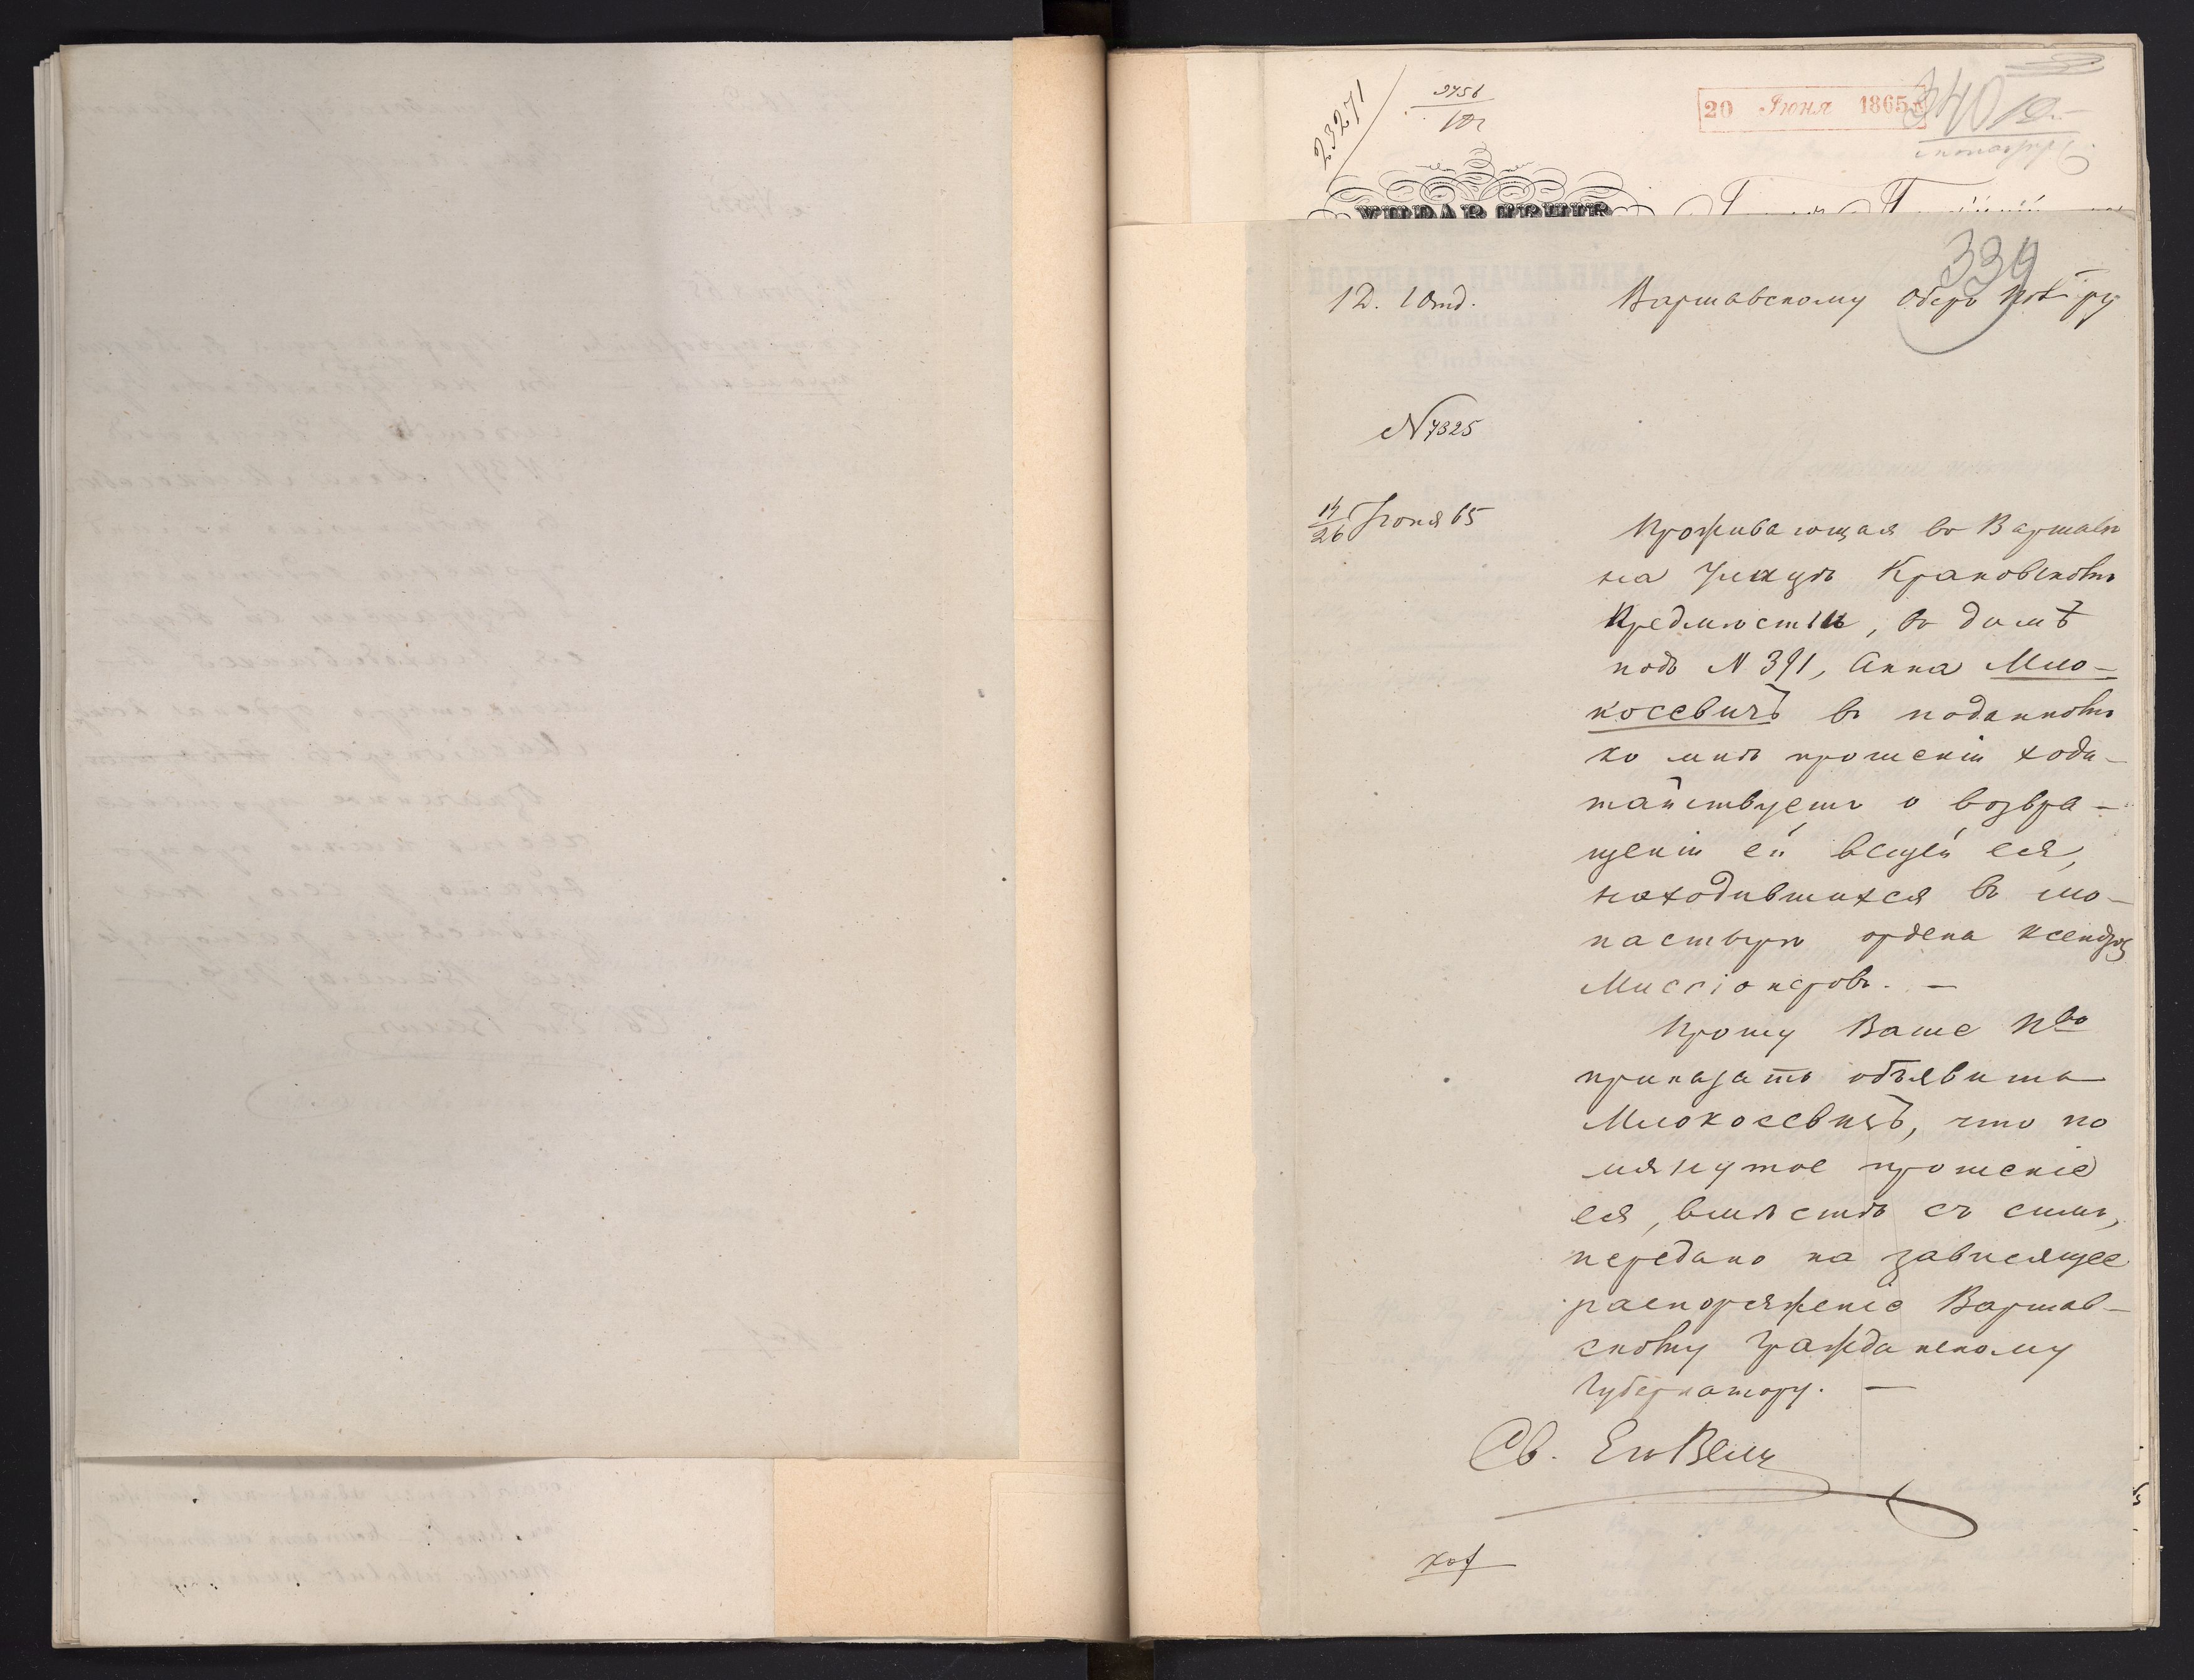 23271
2756
20 Июня 1865
340
УПРАВЛЕНІЕ
339
12. 1 Отд.
Варшавскому Оберъ
N 7325
14/26 Іюня 65
Проживающая въ Варшавѣ
на Улицѣ Краковскомъ
Предмѣстіи, въ домѣ
подъ N 391, Анна Мло-
косевичъ въ поданномъ
ко мнѣ прошеніи хода-
тайствуетъ о возвра-
щеніи ей вещей ея,
находившихся въ мо-
настырѣ ордена Ксендзовъ
Миссіонеровъ. —
Прошу Ваше Пво
приказать объявить
Млокосевичъ, что по
мянутое прошеніе
ея, вмѣстѣ съ симъ,
передано на зависящее
распоряженіе Варшав-
скому Гражданскому
Губернатору. —
Св.